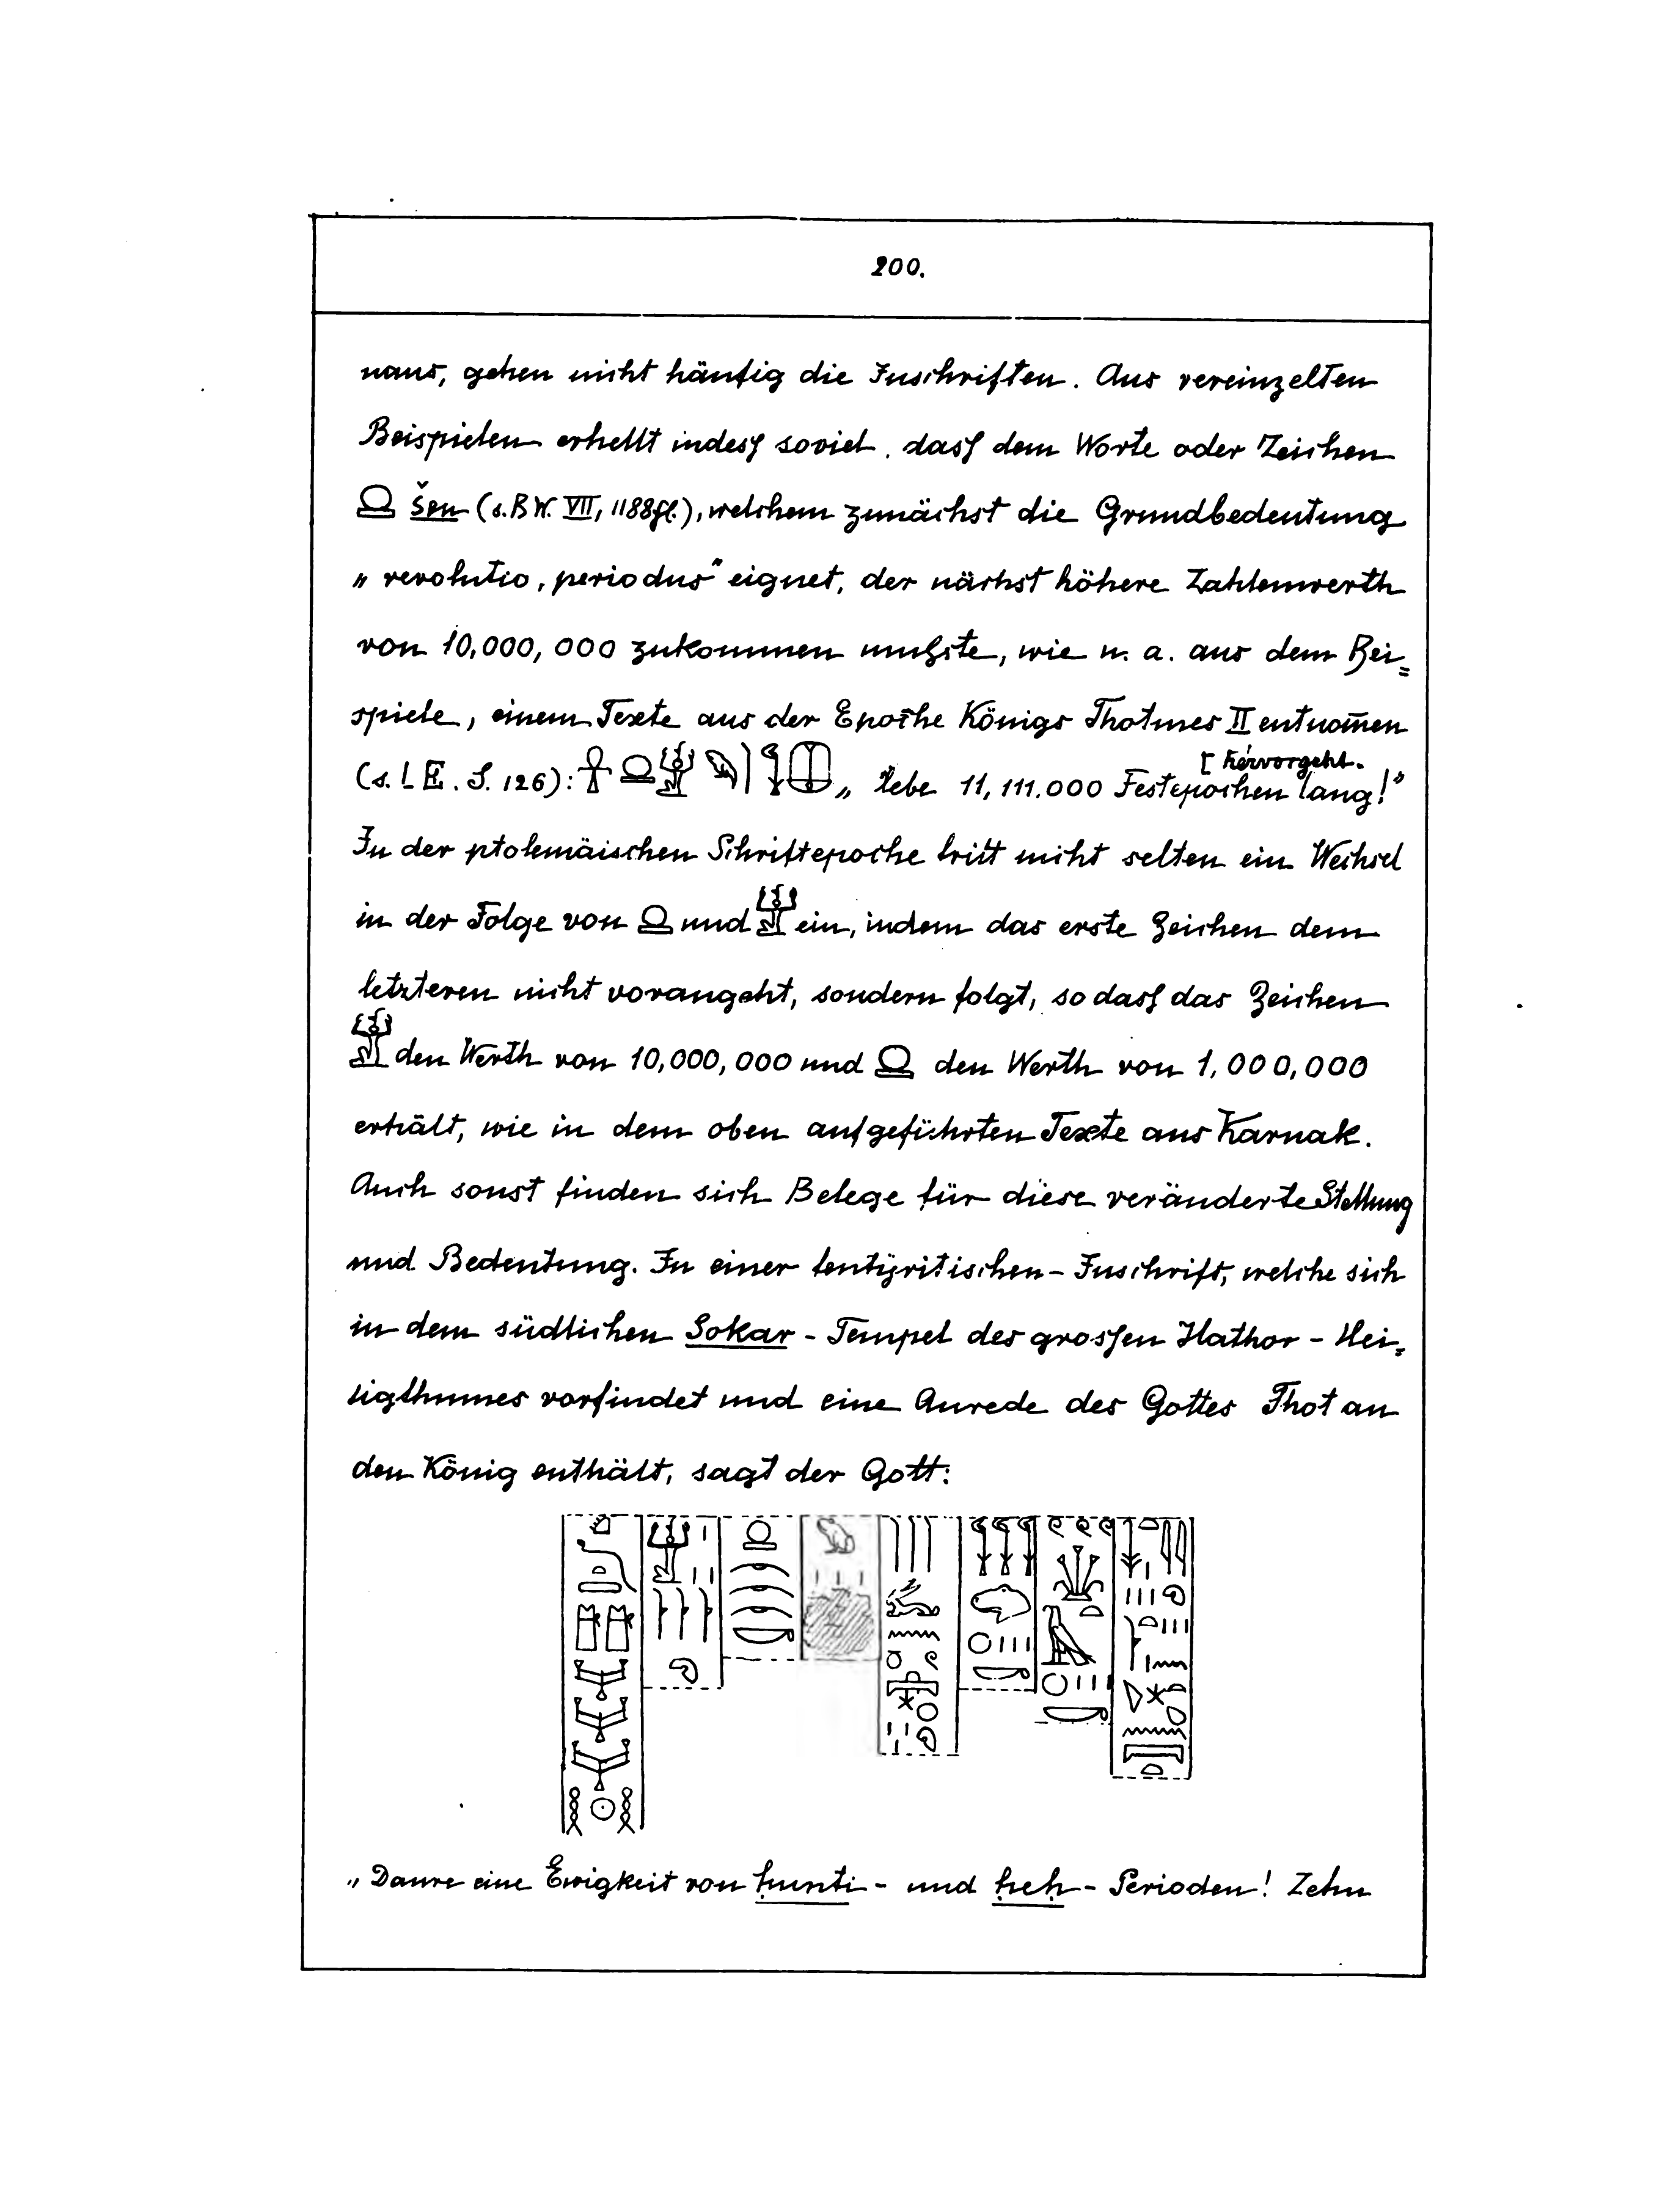 200.
naus, gehen nicht häufig die Inschriften. Aus vereinzelten
Beispielen erhellt indess soviel, dass dem Worte oder Zeichen
𓍶 šen (s. BW. VII, 1188fl.), welchem zunächst die Grundbedeutung
„revolutio, periodus" eignet, der nächst höhere Zahlenwerth
von 10,000,000 zukommen mußte, wie u. a. aus dem Bei=
spiele, einem Texte aus der Epoche Königs Thotmes II entnom̄en
[hervorgeht.
(s. l. E. S. 126): 𓋹𓍶𓁨𓆐𓂭𓆼𓎱 „lebe 11,111.000 Festepochen lang!"
In der ptolemäischen Schriftepoche tritt nicht selten ein Wechsel
in der Folge von 𓍶 und 𓁨 ein, indem das erste Zeichen dem
letzteren nicht vorangeht, sondern folgt, so dass das Zeichen
𓁨 den Werth von 10,000,000 und 𓍶 den Werth von 1,000,000
erhält, wie in dem oben aufgeführten Texte aus Karnak.
Auch sonst finden sich Belege für diese veränderte Stellung
und Bedeutung. In einer tentyritischen-Inschrift, welche sich
in dem südlichen Sokar-Tempel des grossen Hathor-Hei=
ligthumes vorfindet und eine Anrede des Gottes Thot an
den König enthält, sagt der Gott:
„Daure eine Ewigkeit von ḥunti- und ḥeḥ-Perioden! Zehn